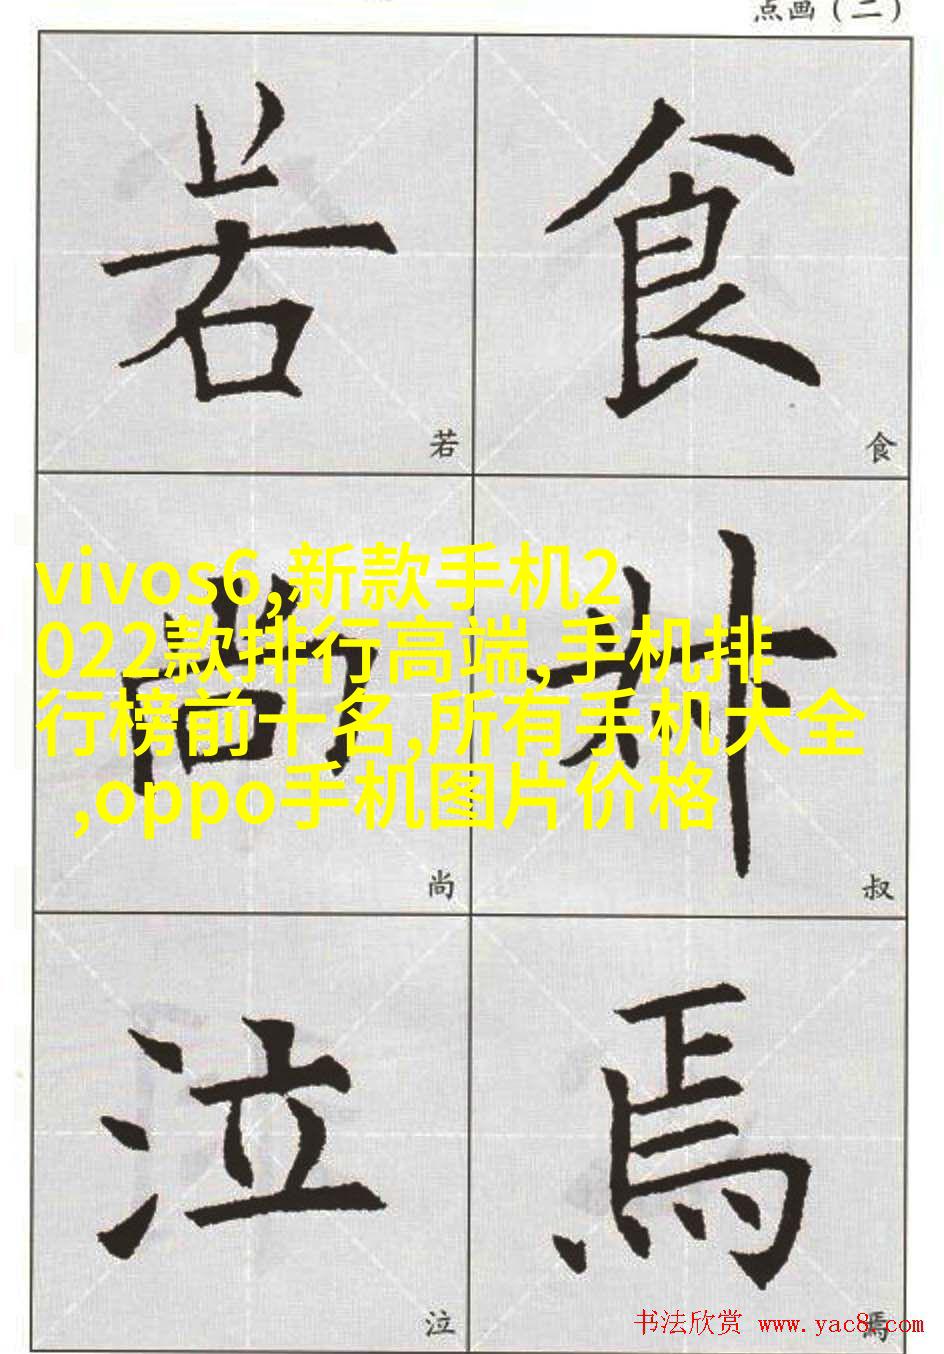 点画（二）
若 食
若 食
vivos6,新款手机2
022款排行高端,手机排
行榜前十名,所有手机大全
,oppo手机图片价格
尚 叔
尚 叔
泣 焉
泣 焉
书法欣赏 www.yac8.com